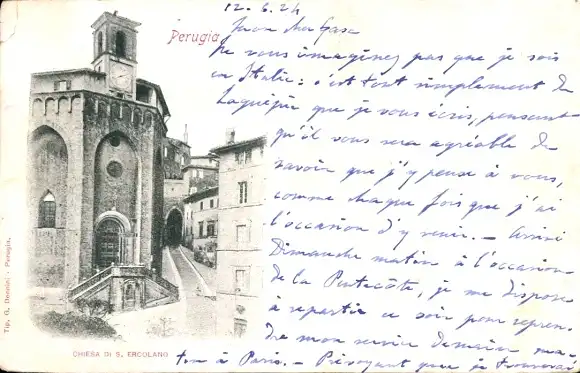 12.6.24
Perugia
Ne vous imaginez pas que je sois
en Italie: c'est tout simplement de
que je vous écris, pensant
qu'il vous sera agréable de
savoir que j'y pense à vous,
comme chaque fois que j'ai
l'occasion d'y venir. - Arrivé
Dimanche matin à l'occasion
de la Pentecôte, je me dispose
à repartir ce soir pour repren-
dre mon service demain ma-
tin à Paris. - Prévoyant que je
CHIESA DI S. ERCOLANO
Tip. G. - Perugia.